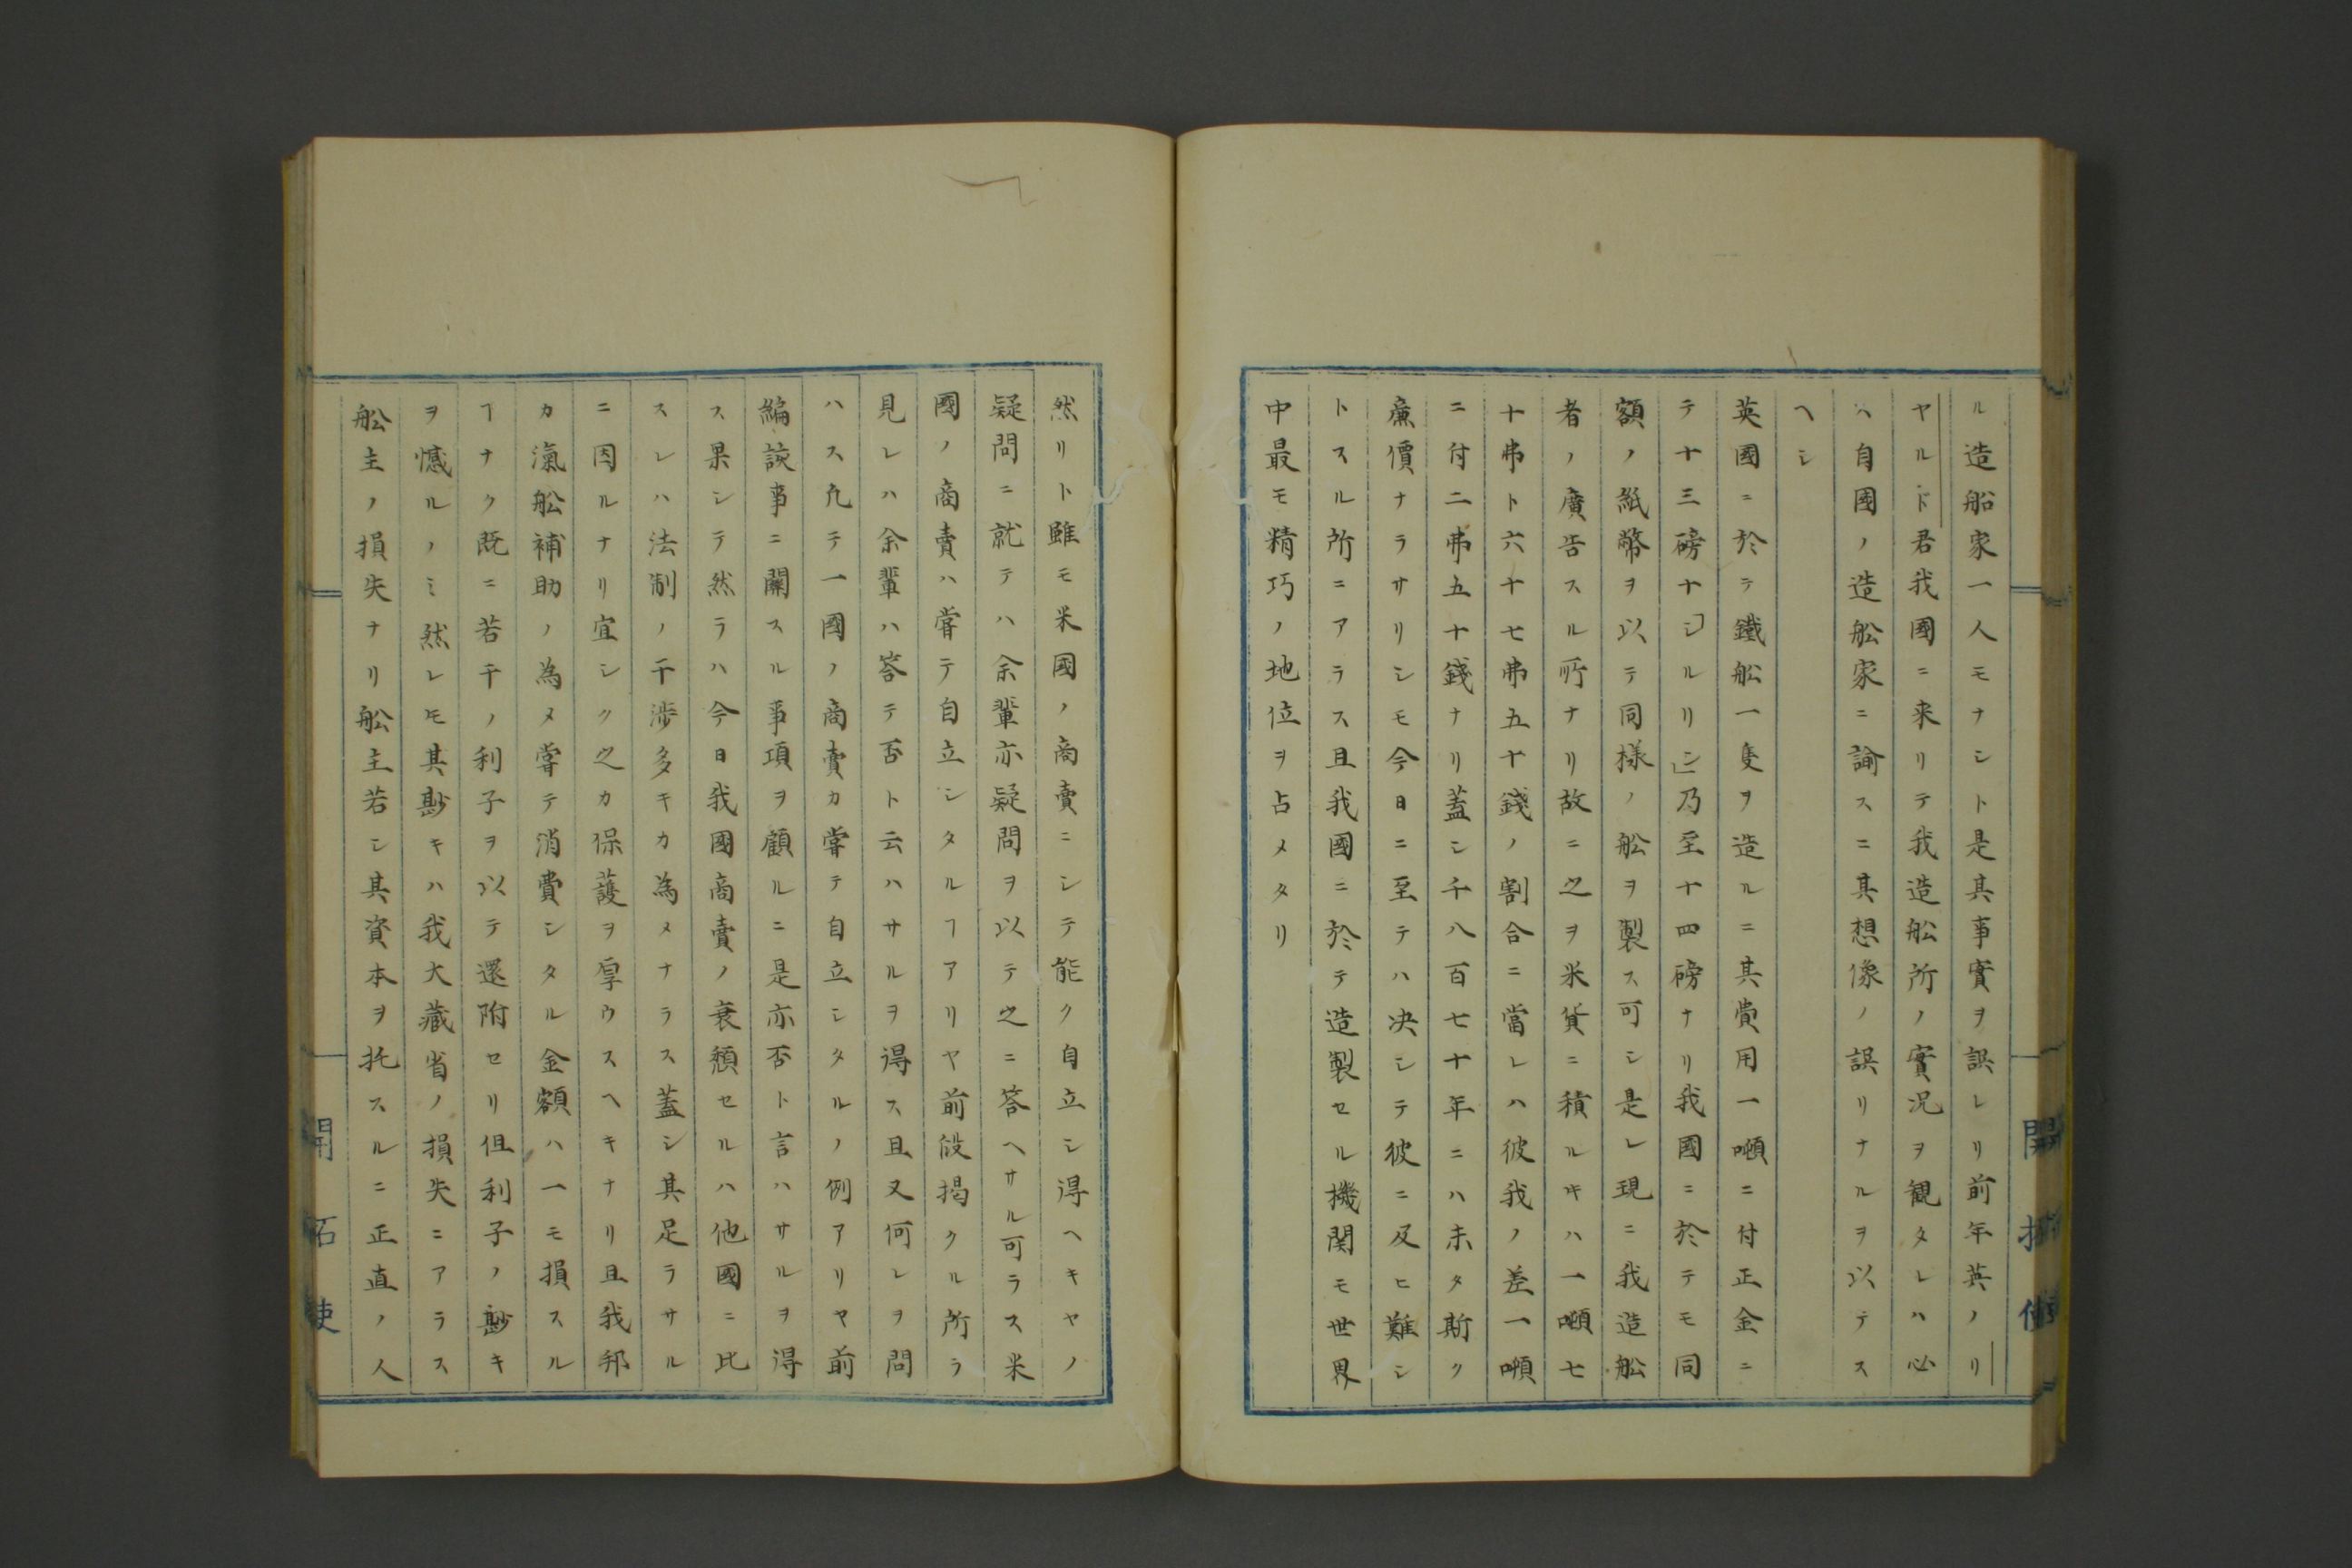 ル造船家一人モナシト是其事實ヲ誤レリ前年英ノリ
ヤルド君我國ニ来リテ我造船所ノ實況ヲ観タレハ必
ハ自國ノ造舩家ニ諭スニ其想像ノ誤リナルヲ以テス
ヘシ
英國ニ於テ鐵舩一隻ヲ造ルニ其費用一噸ニ付正金ニ
テ十三磅十「シルリン」乃至十四磅ナリ我國ニ於テモ同
額ノ紙幣ヲ以テ同様ノ舩ヲ製ス可シ是レ現ニ我造舩
者ノ廣告スル所ナリ故ニ之ヲ米貨ニ積ルキハ一噸七
十弗ト六十七弗五十錢ノ割合ニ當レハ彼我ノ差一噸
ニ付二弗五十錢ナリ蓋シ千八百七十年ニハ未タ斯ク
廉價ナラサリシモ今日ニ至テハ决シテ彼ニ及ヒ難シ
トスル所ニアラス且我國ニ於テ造製セル機関モ世界
中最モ精巧ノ地位ヲ占メタリ
然リト雖モ米國ノ商賣ニシテ能ク自立シ得ヘキヤノ
疑問ニ就テハ余輩亦疑問ヲ以テ之ニ答ヘサル可ラス米
國ノ商賣ハ甞テ自立シタルヿアリヤ前段掲クル所ラ
見レハ余輩ハ答テ否ト云ハサルヲ得ス且又何レヲ問
ハス凢テ一國ノ商賣カ甞テ自立シタルノ例アリヤ前
編該事ニ關スル事項ヲ顧ルニ是亦否ト言ハサルヲ得
ス果シテ然ラハ今日我國商賣ノ衰頽セルハ他國ニ比
スレハ法制ノ干渉多キカ為メナラス蓋シ其足ラサル
ニ因ルナリ宜シク之カ保護ヲ厚ウスヘキナリ且我邦
カ滊舩補助ノ為メ甞テ消費シタル金額ハ一モ損スル
ヿナク既ニ若干ノ利子ヲ以テ還附セリ但利子ノ尠キ
ヲ憾ルノミ然レモ其尠キハ我大藏省ノ損失ニアラス
舩主ノ損失ナリ舩主若シ其資本ヲ托スルニ正直ノ人